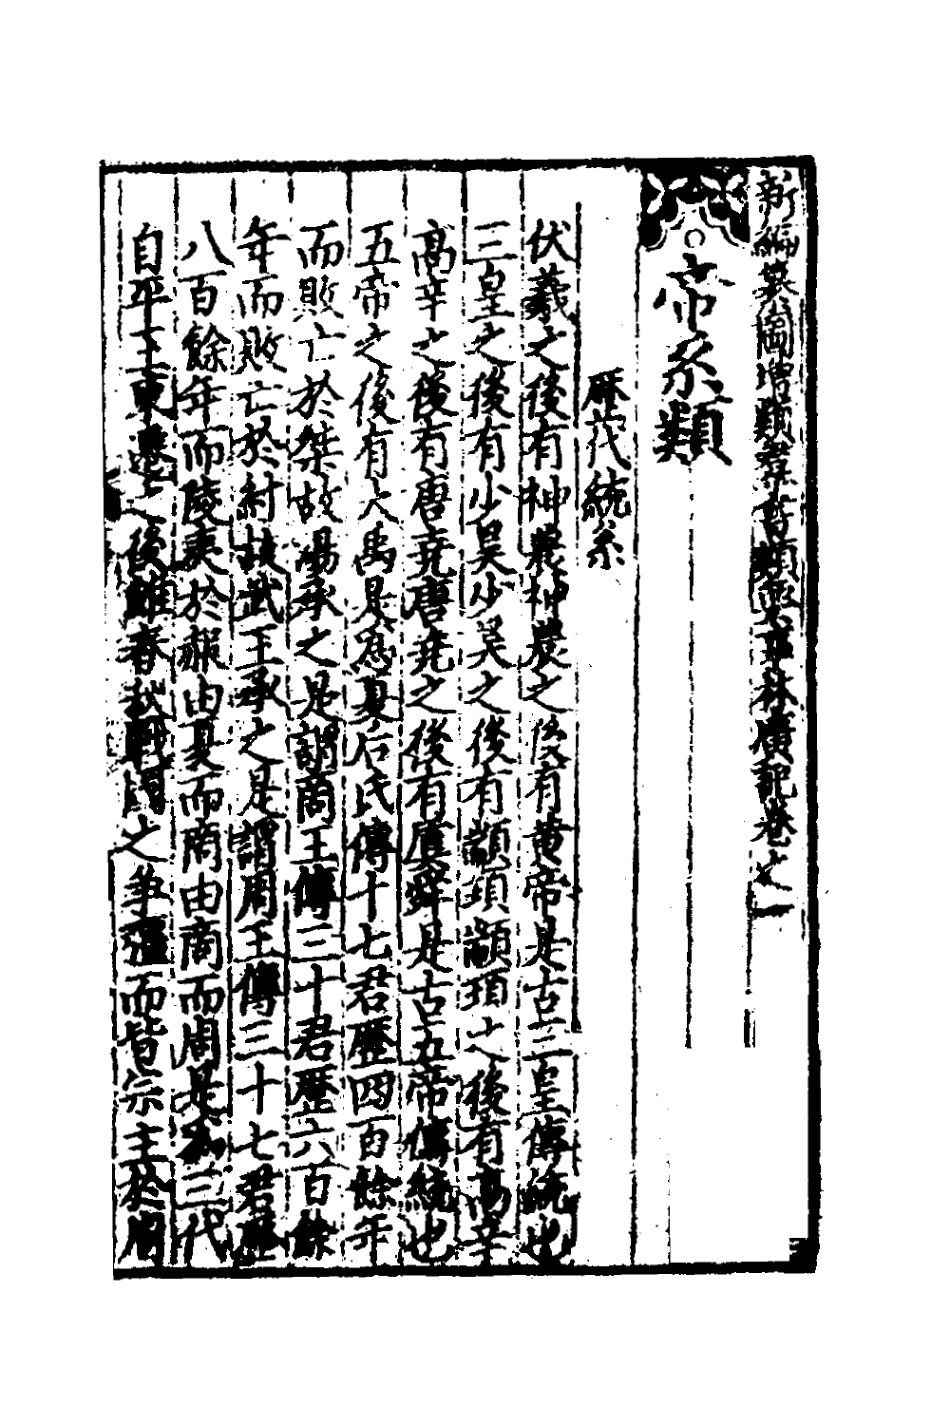 新編纂圖增類群書類要事林廣記卷之一
帝系類
歷代統系
伏羲之後有神農神農之後有黃帝是古三皇傳統也
三皇之後有少昊少昊之後有顓頊顓頊之後有高辛
高辛之後有唐堯唐堯之後有虞舜是古五帝傳統也
五帝之後有大禹是為夏后氏傳十七君歷四百餘年
而敗亡於桀故湯承之是謂商王傳三十君歷六百餘
年而敗亡於紂故武王承之是謂周王傳三十七君歷
八百餘年而陵夷於赧由夏而商由商而周是為三代
自平王東遷之後雖春秋戰國之爭彊而皆宗主於周